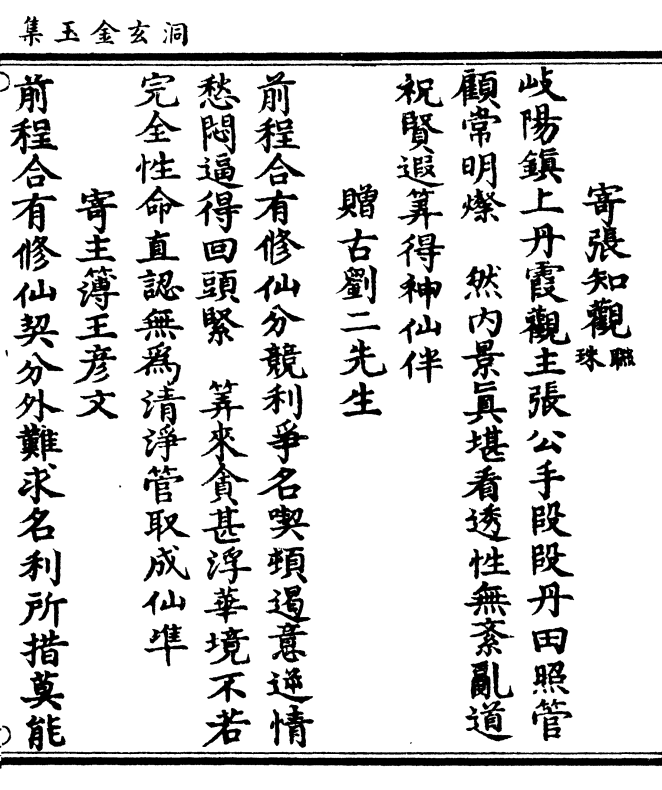 洞玄金玉集
寄張知觀聯珠
岐陽鎮上丹霞觀主張公手段段丹田照管
顧常明燦　然內景真堪看透性無紊亂道
祝賢遐筭得神仙伴
贈古劉二先生
前程合有修仙分競利爭名喫頓遏意逆情
愁悶逼得回頭緊　筭來貪甚浮華境不若
完全性命直認無爲清淨管取成仙準
寄主簿王彥文
前程合有修仙契分外難求名利所措莫能